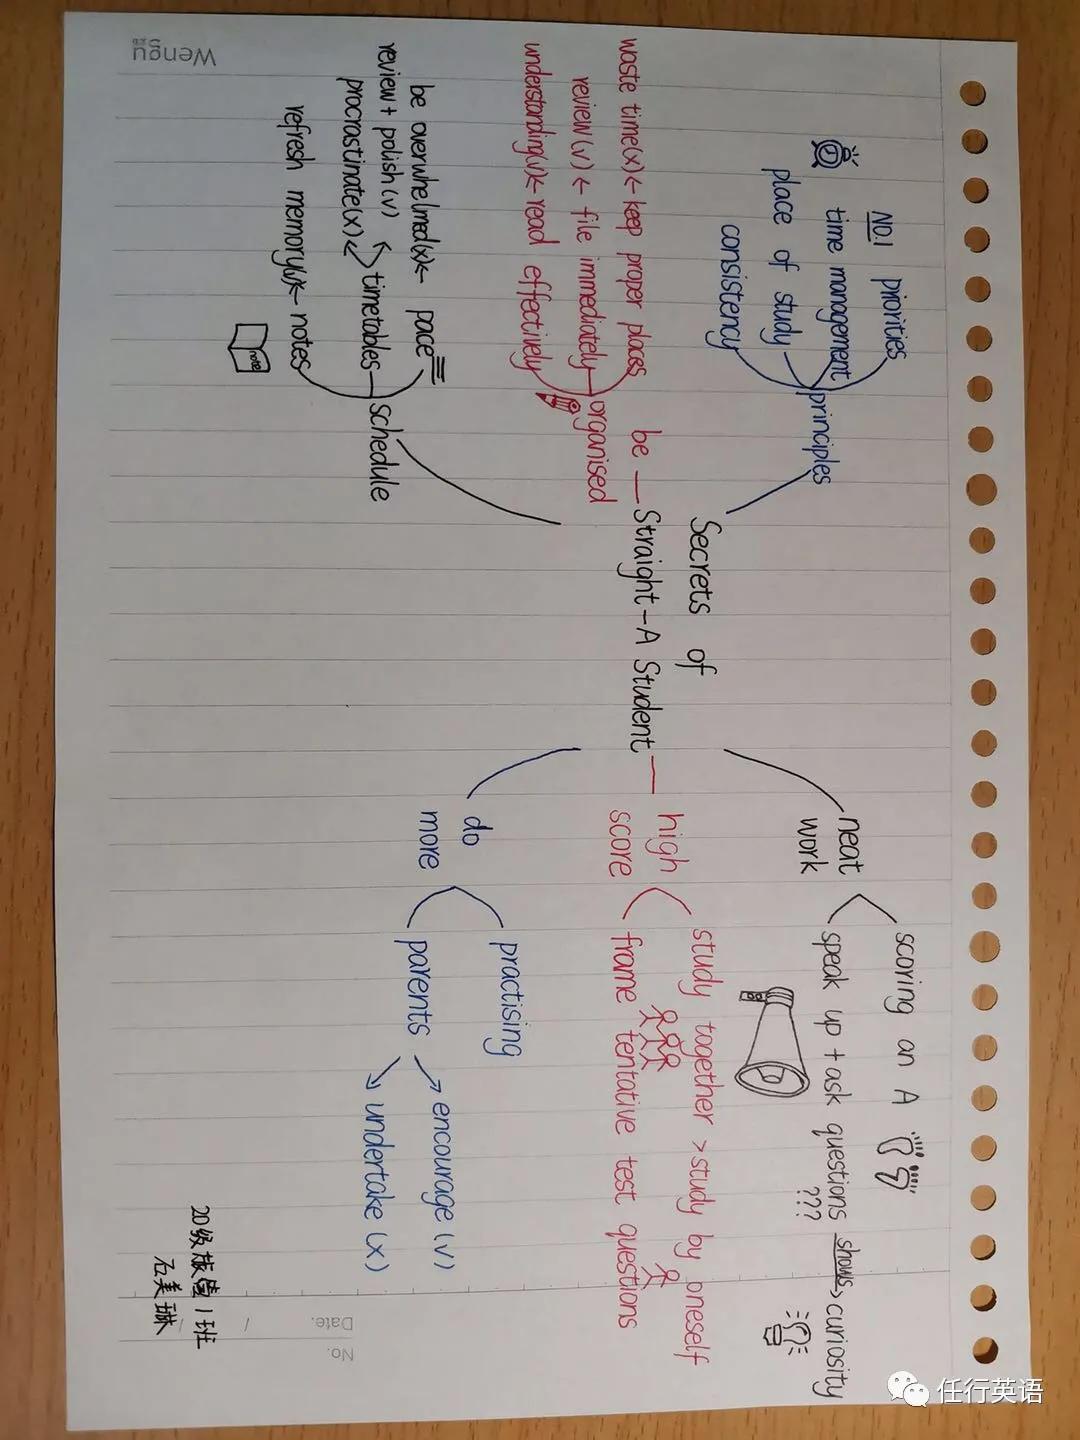 Secrets of
Straight-A Student
principles
NO.1 priorities
time management
place of study
consistency
be
organised
waste time(x)← keep proper places
review(v) ← file immediately
understanding(v)← read effectively
schedule
be overwhelmed(x)← pace
review + polish(v)
procrastinate(x)
timetables
refresh memory(v)← notes
note
neat
work
scoring an A
speak up + ask questions shows→ curiosity
???
high
score
study together > study by oneself
frame tentative test questions
do
more
practising
parents
encourage (v)
undertake (x)
20级旅管1班
石美琳
Wengu
No.
Date.
任行英语